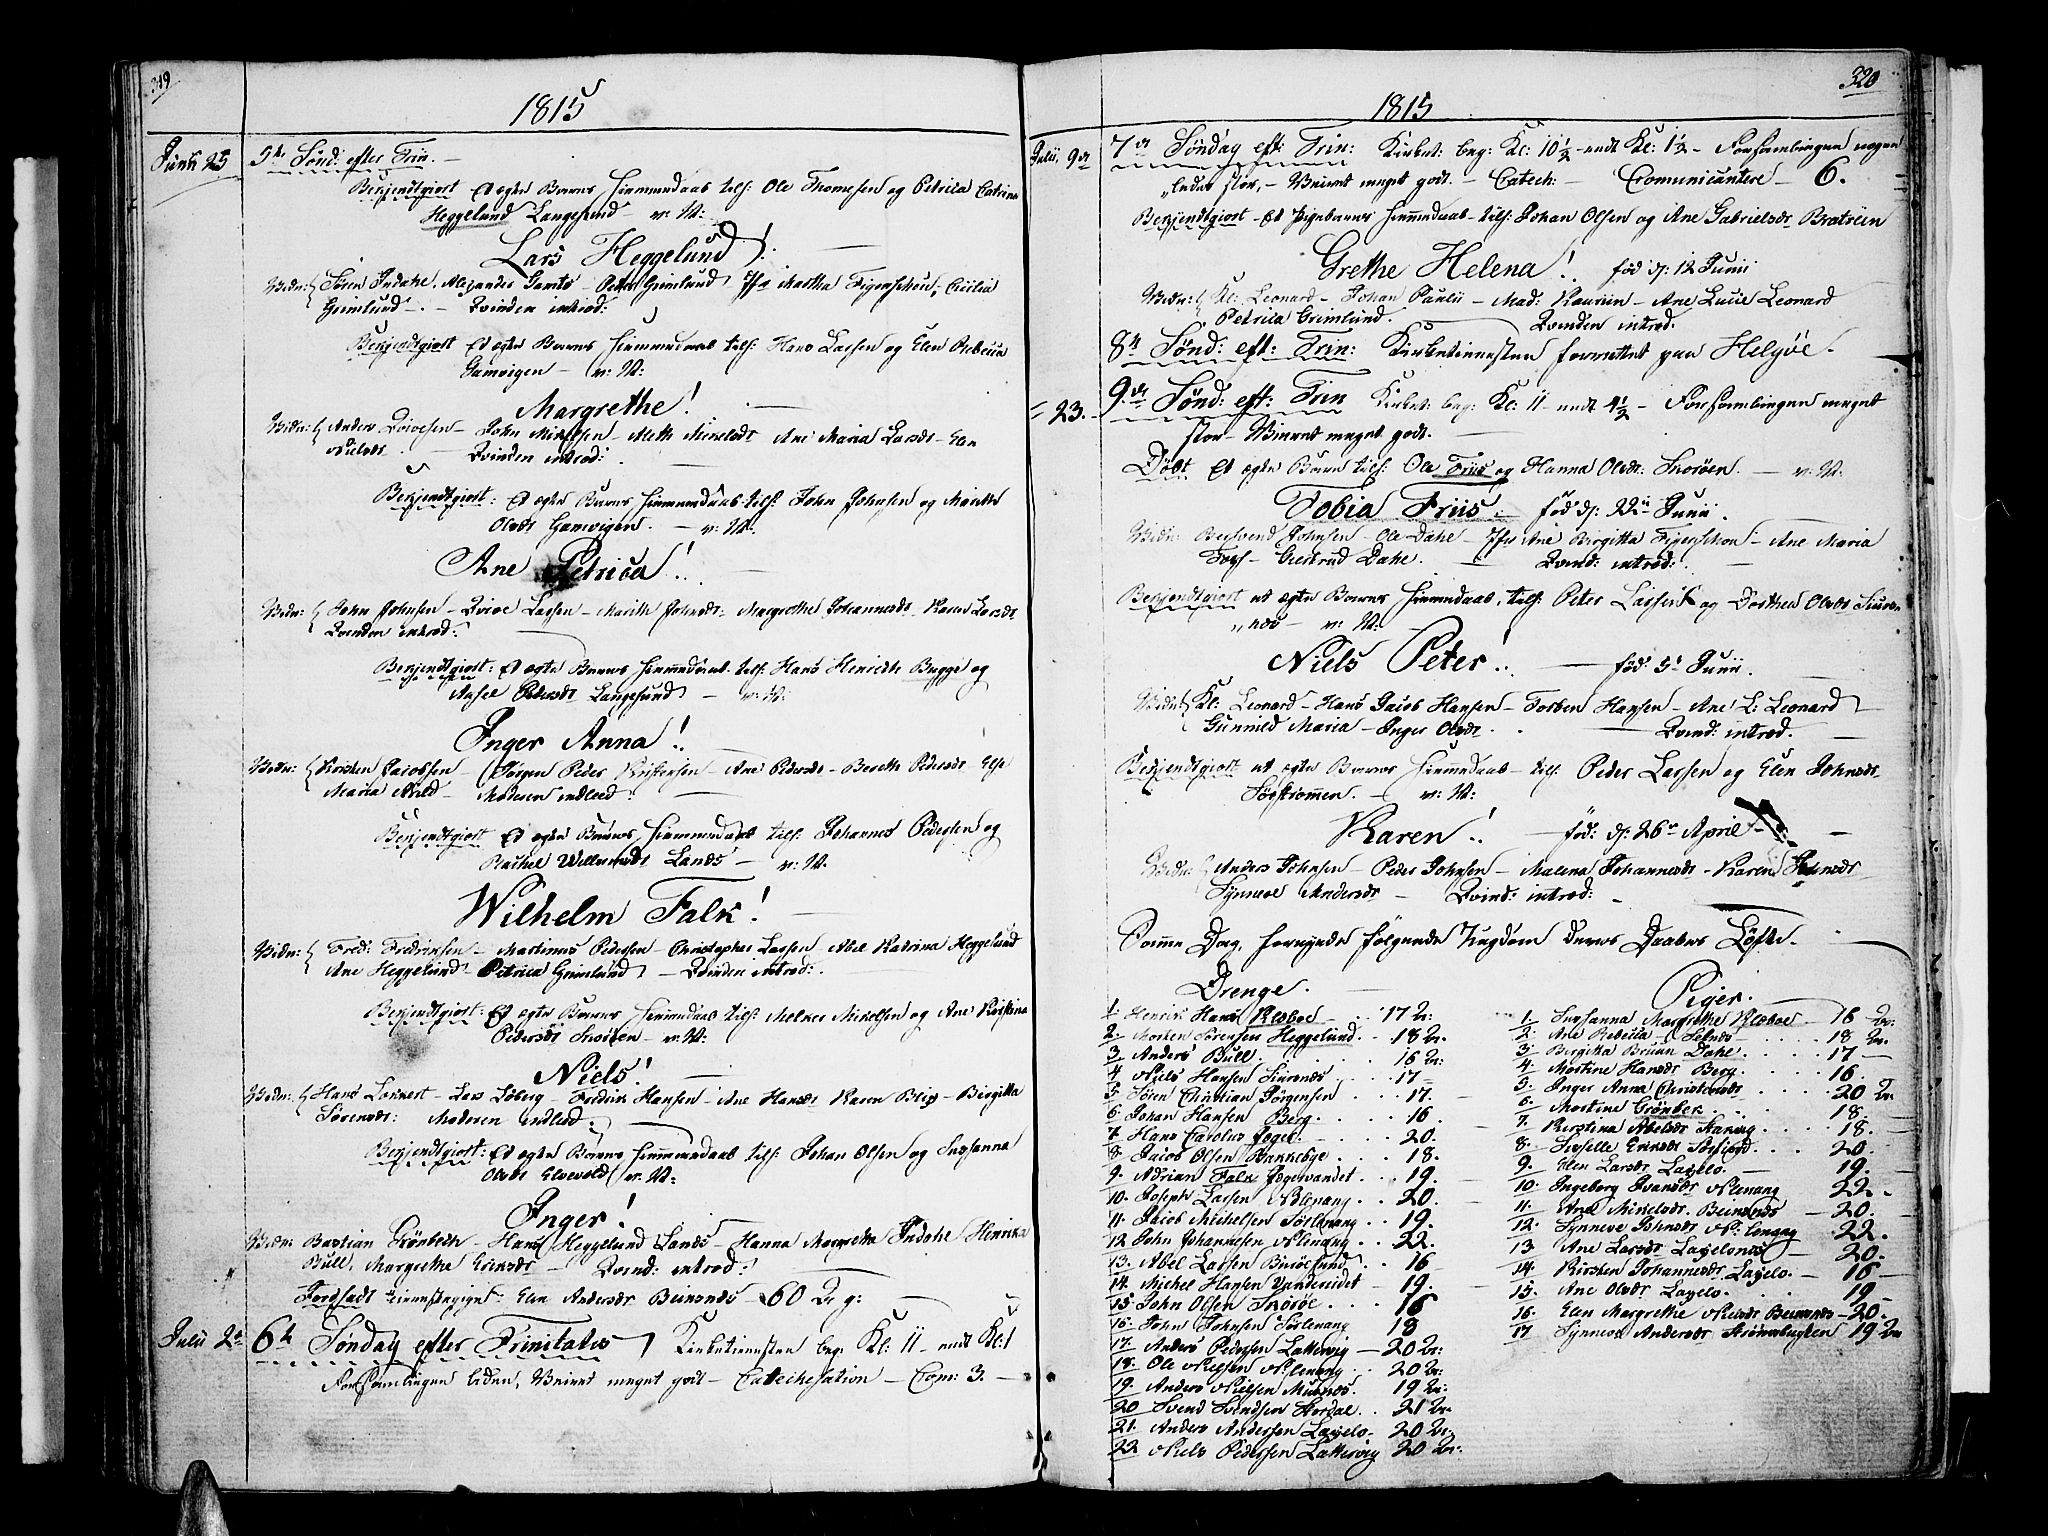 319
1815
Junii 25 5te Sönd: efter Trin. —
Bekjendtgiort Et ægte Barns hiemmedaab tilf: Ole Thomesen og Petrica Catrina
Heggelund Langesund — v: N:
Lars Heggelund!
Vidn: Sören Indahl, Peter Grimlund Jfr Martha Figenschou, Cicilia
Grimlund — Qvinden introd:
Bekjendtgiort Et ægte Barns hiemmedaab tilf: Hans Larsen og Elen Rebecca
Gamvigen — v: N:
Margrethe!
Vidn: Anders — John Mikelsen — Mikelsdr Ane Maria Larsdr — Elen
Nielsdr Qvinden introd:
Bekjendtgiort: Et ægte Barns hiemmedaab tilf: John Johnsen og Marith
Olsdr Gamvigen. — v: N:
Ane Petrica!
Vidn: John Johnsen — Larsen — Marith Johnsdr — Margrethe Johannesdr — Karen Larsdr
Qvinden introd:
Bekjendtgiort: Et ægte Barns hiemmedaab tilf: Hans Henrich Bugge og
Pedersdr Langesund — v: N:
Inger Anna!
Vidn: Kristen Jacobsen — Jörgen Peder Kristensen — Ane Pedersdr — Bereth Pedersdr Else
Maria — Moderen indled:
Bekjendtgiort Et ægte Barns hiemmedaab tilf: Johannes Pedersen og
Rachel Lands — v: N:
Wilhelm Falk!
Vidn: Fred: Fredriksen — Martinus Pedersen — Christopher Larsen Abel Katrina Heggelund
Ane Heggelund Petrica Grimlund — Qvinden introd:
Bekjendtgiort: Et ægte Barns hiemmedaab tilf: Mikelsen og Ane Kristina
Pedersdr Snoröen — v: N:
Niels!
Vidn: Hans — Lars — Fredrik Hansen — Ane Hansdr Karen Blix — Birgitta
Sörensdr: Moderen indled:
Bekjendtgiort: Et ægte Barns hiemmedaab tilf: Johan Olsen og Susanna
Olsdr Elvevold v: N:
Inger!
Vidn: Bastian Grönbech — Hans Heggelund Lands — Hanna Margretha Indahl Henrica
Bull, Margretha Eriksdr — Qvind: introd:
Jordfæst Elen Andersdr — 60 Ar g:
Julii 2de 6te Söndag efter Trinitatis Kirketienesten beg: Kl: 11 — endt Kl: 1
Forsamlingen liden, Veiret meget godt — Catechesation — Com: 3. —
320
1815
Julii, 9de 7de Söndag eft: Trin: Kirket: beg: Kl: 10 1/2 — endt Kl: 1 1/2 — Forsamlingen nogen-
ledes stor, — Veiret meget godt. — Catech: — Comunicantere — 6.
Bekjendtgiort — Et Pigebarns hiemmedaab — tilf: Johan Olsen og Ane Gabrielsdr Bratrein
Grethe Helena! föd d: 12 Junii
Vidn: Kl: Leonard — Johan Paulii — Mad: — Ane Lucie Leonard
Petrica Grimlund. Qvinden introd.
8de Sönd: eft: Trin: Kirketienesten forrettet paa Helgöe.
— 23. 9de Sönd: eft: Trin Kirket: beg: Kl: 11 — endt 4 1/2 — Forsamlingen meget
stor — Veiret meget godt.
Döbt Et ægte Barn tilf: Ole Friis og Hanna Olsdr: Snoröen. — v: N:
Tobia Friis. föd d: 22de Junii.
Vidn: Johnsen — Ole Dahl — Jfr Ane Birgitta Figenschou — Ane Maria
Gertrud Dahl. Qvind: introd:
Bekjendtgiort et ægte Barns hiemmedaab, tilf: Peter Larsen og Dorthea Olsdr
næs — v: N:
Niels Peter! — föd 5te Junii.
Vidn: Kl: Leonard — Hans Jacob Hansen — Torben Hansen — Ane L: Leonard
Gunnild Maria — Inger Olsdr. Qvind: introd.
Bekjendtgiort et ægte Barns hiemmedaab — tilf: Peder Larsen og Elen Johnsdr
v: N:
Karen! — föd: d: 26de April
Vidn: Anders Johnsen — Peder Johnsen — Malena Johannesdr — Karen
Synneve Andersdr Qvind: introd:
Samme Dag, fornyede fölgende Ungdom deres Daabes Löfte.
Drenge.
1. Henrik Hans Klæboe 17 Ar.
2. Morten Sörensen Heggelund. 18 Ar.
3 Anders Bull. 16 Ar:
4 Niels Hansen 17 —
5. Sören Christian Jörgensen 17.
6. Johan Hansen Berg 16
7. Hans Carolus 20.
8. Jacob Olsen Bakkebye 18.
9. Adrian Falk Jægervandet 19.
10. Joseph Larsen 20.
11. Jacob Michelsen Sörlenang 19.
12 John Johannesen Nlenang 22.
13. Abel Larsen 16
14. Michel Hansen Vandereidet 19.
15 John Olsen Snoröe 16
16. John Johnsen Sörlenang 18
17. Anders Pedersen Lattervig 20 Ar:
18. Ole Nielsen Nlenang 20 Ar:
19. Anders Nielsen 19 Ar:
20 Svend Svendsen Stordal 21 Ar.
21. Anders Andersen 20 Ar:
22 Niels Pedersen Lattervig 20 Ar:
Piger.
1. Susanna Margrethe Klæboe 16 Ar:
2. Ane Rebecca 18 Ar.
3. Birgitta Bruun Dahl 17 —
4. Martine Hansdr Berg 16.
5. Inger Anna Christensdr 20 Ar
6. Martine Grönbek 18.
7. Kerstina Abelsdr 18.
8. Eriksdr 20.
9. Elen Larsdr 19.
10. Ingeborg Nlenang 22.
11. Ane Mikelsdr 20.
12. Synneve Johnsdr Nlenang 22.
13. Ane Larsdr 20.
14. Kirsten Johannesdr 16
15. Ane Olsdr 19
16. Elen Margrethe Nielsdr 20.
17 Synneve Andersdr Strömbugten 19 Ar